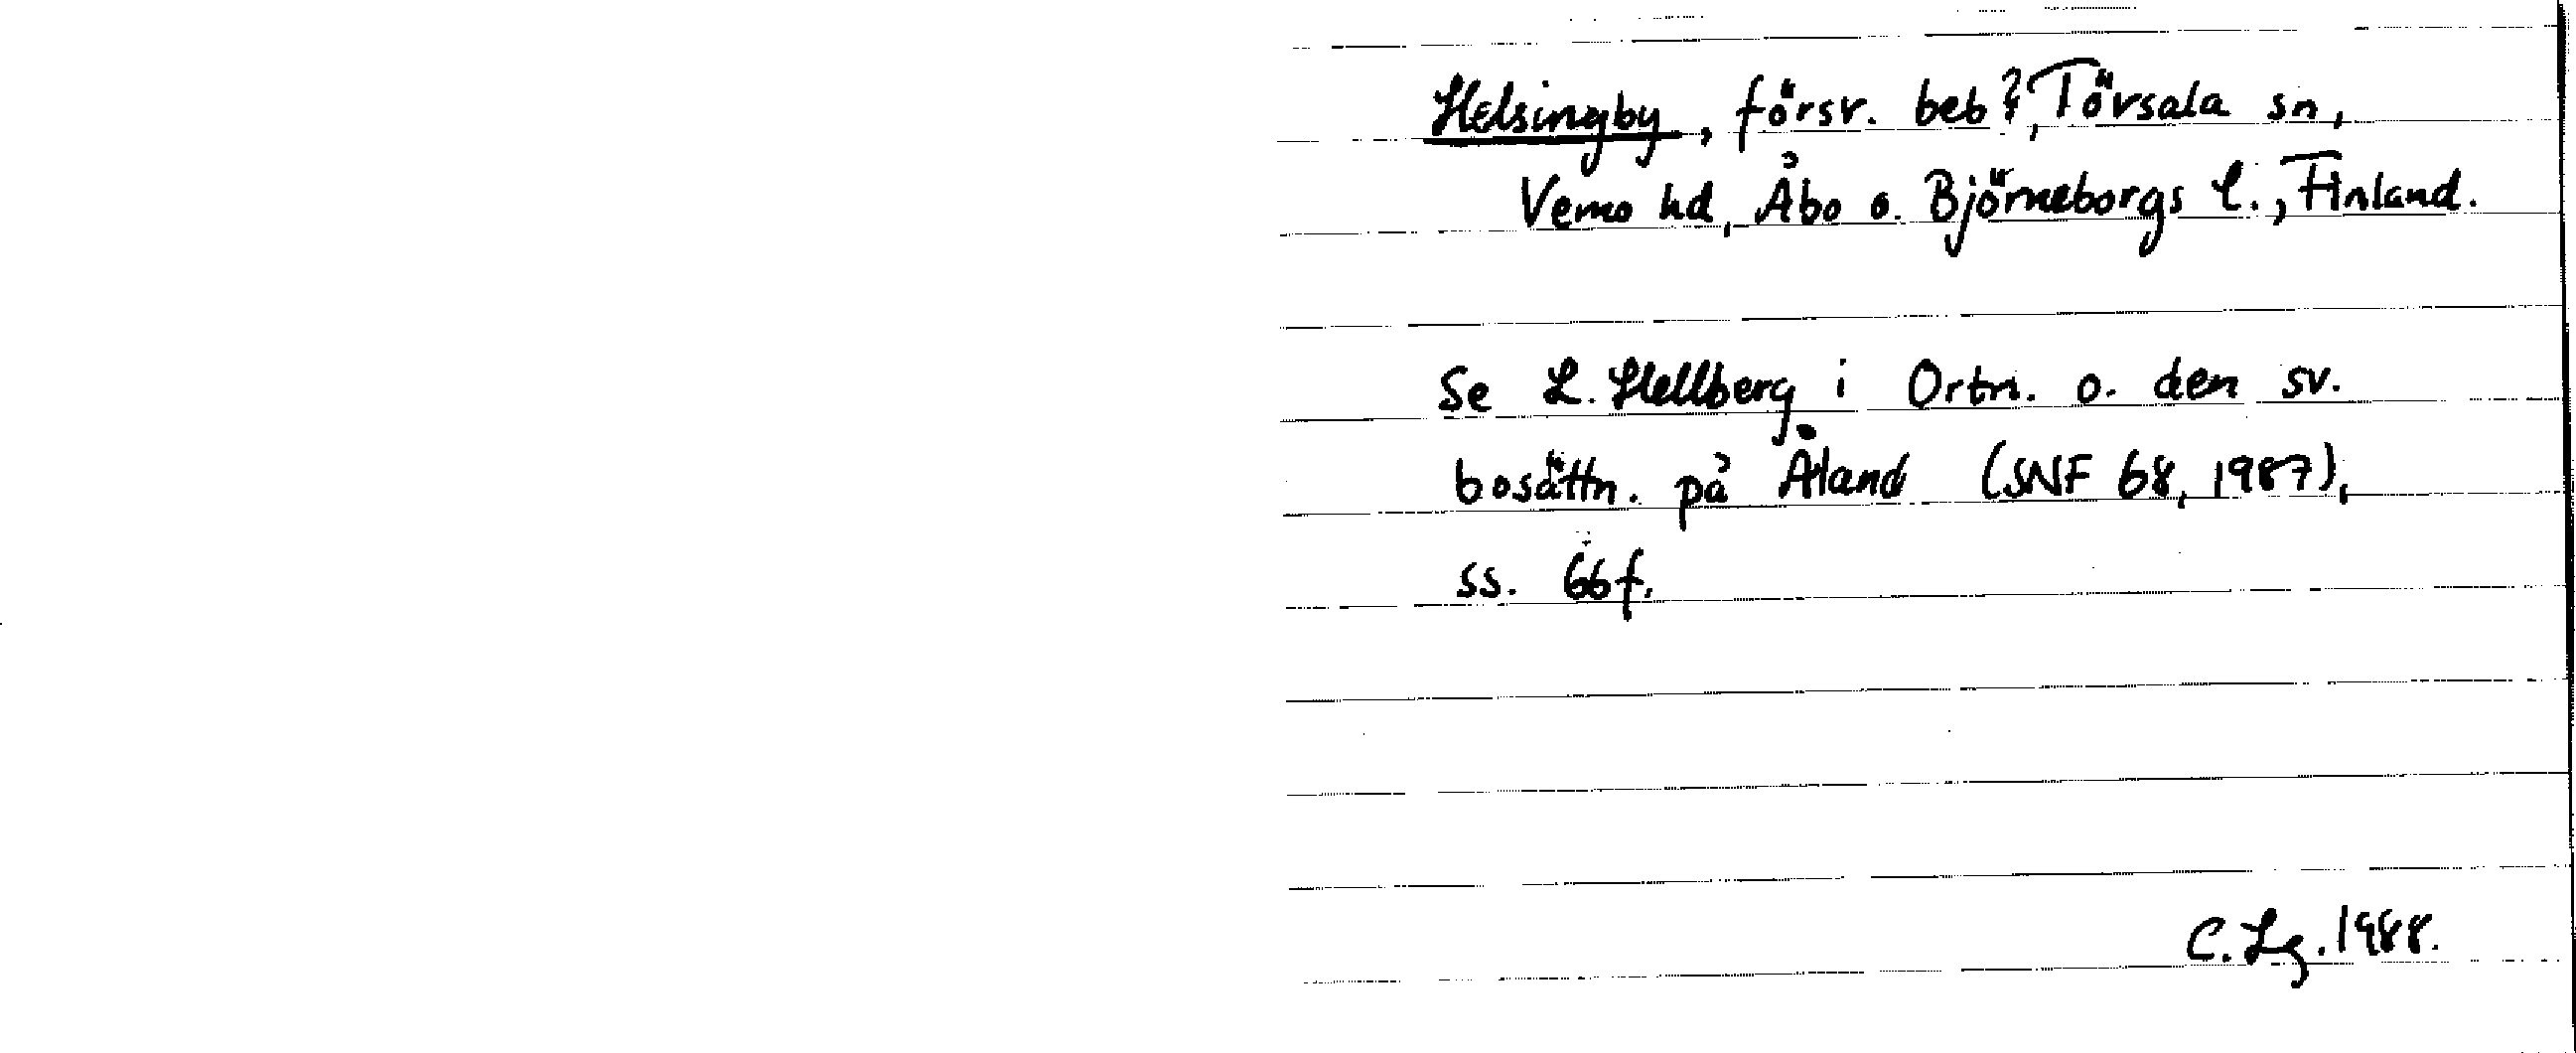 Helsingby, försv. beb?, Tövsala sn,
Vemo hd, Åbo o. Björneborgs l., Finland.
Se L. Hellberg i Ortn. o. den sv.
bosättn. på Åland (SNF 68, 1987),
ss. 66f.
C. Lg. 1988.